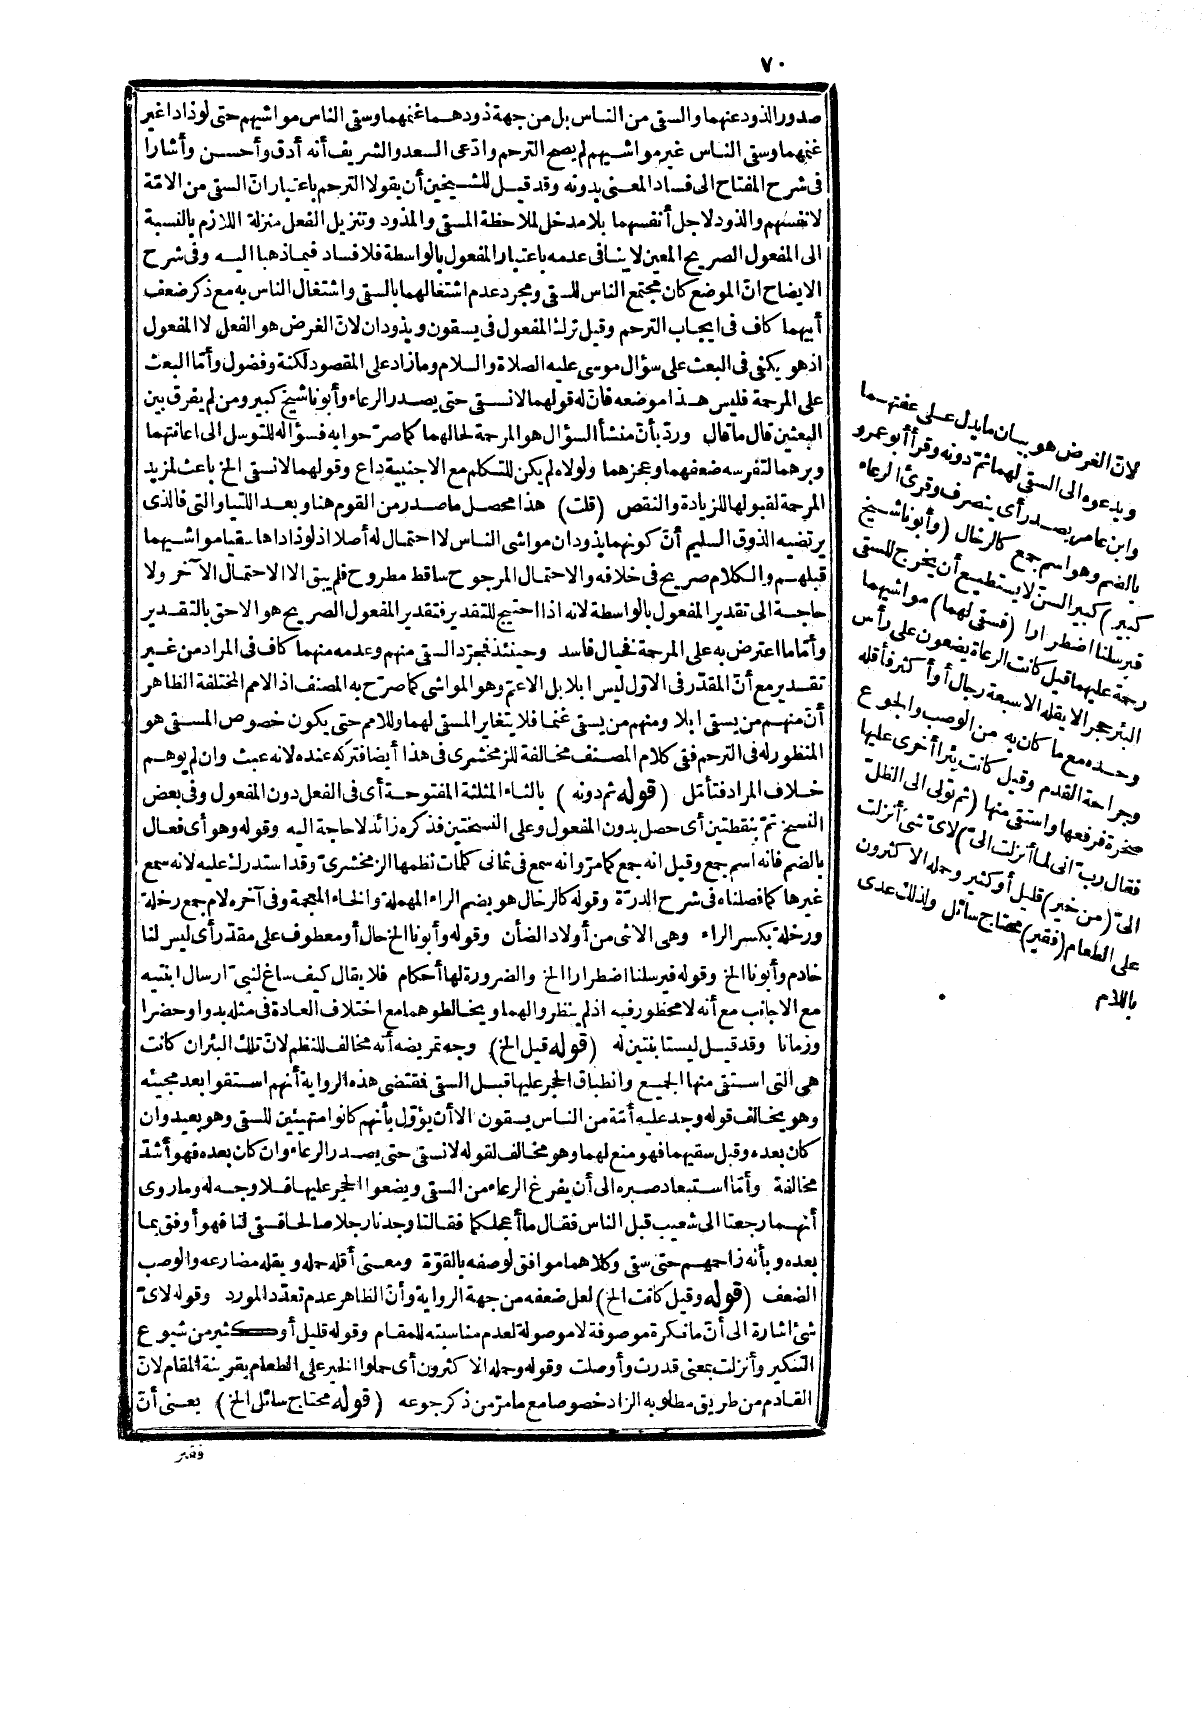 ٧٠
صدور الذود عنهما والسقى من الناس بل من جهة ذودهما غنمهما وسقى الناس مواشيهم حتى لو ذادا غير
غنمهما وسقى الناس غير مواشيهم لم يصح الترحم وادّعى السعد والشريف أنه أدق وأحسن وأشارا
فى شرح المفتاح الى فساد المعنى بدونه وقد قيل للشيخين أن يقولا الترحم باعتبار انّ السقى من الامّة
لانفسهم والذود لاجل أنفسهما بلا مدخل لملاحظة المسقى والمذود وتنزيل الفعل منزلة اللازم بالنسبة
الى المفعول الصريح المعين لا ينافى عدمه باعتبار المفعول بالواسطة فلا فساد فيما ذهبا اليه وفى شرح
الايضاح انّ الموضع كان مجتمع الناس للسقى ومجرد عدم اشتغالهما بالسقى واشتغال الناس به مع ذكر ضعف
أبيهما كاف فى ايجاب الترحم وقيل ترك المفعول فى يسقون ويذودان لانّ الغرض هو الفعل لا المفعول
اذ هو يكفى فى البعث على سؤال موسى عليه الصلاة والسلام وما زاد على المقصود لكنة وفضول وأمّا البعث
على المرحمة فليس هذا موضعه فانّ له قولهما لا نسقى حتى يصدر الرعاء وأبونا شيخ كبير ومن لم يفرق بين
البعثين قال ما قال وردّ بأنّ منشأ السؤال هو المرحمة لحالهما كما صرّحوا به فسؤاله للتوسل الى اعانتهما
وبرهما لتفرسه ضعفهما وعجزهما ولولاه لم يكن للتكلم مع الاجنبية داع وقولهما لا نسقى الخ باعث لمزيد
المرحمة لقبولها للزيادة والنقص (قلت) هذا محصل ما صدر من القوم هنا وبعد اللتيا والتى فالذى
يرتضيه الذوق السليم أنّ كونهما يذودان مواشى الناس لا احتمال له أصلا اذ لو ذاداها سقيا مواشيهما
قبلهم والكلام صريح فى خلافه والاحتمال المرجوح ساقط مطروح فلم يبق الا الاحتمال الآخر ولا
حاجة الى تقدير المفعول بالواسطة لانه اذا احتيج للتقدير فتقدير المفعول الصريح هو الاحق بالتقدير
وأمّا ما اعترض به على المرحمة فخيال فاسد وحينئذ فمجرّد السقى منهم وعدمه منهما كاف فى المراد من غير
تقدير مع أنّ المقدّر فى الاوّل ليس ابلا بل الاعمّ وهو المواشى كما صرّح به المصنف اذ الامم المختلفة الظاهر
أنّ منهم من يسقى ابلا ومنهم من يسقى غنما فلا يتغاير المسقى لهما وللامم حتى يكون خصوص المسقى هو
المنظور له فى الترحم ففى كلام المصنف مخالفة للزمخشرى فى هذا أيضا فتركه عنده لانه عبث وان لم يوهم
خلاف المراد فتأمّل (قوله ثم دونه) بالثاء المثلثة المفتوحة أى فى الفعل دون المفعول وفى بعض
النسخ تمّ بنقطتين أى حصل بدون المفعول وعلى النسختين فذكره زائد لا حاجة اليه وقوله وهو أى فعال
بالضم فانه اسم جمع وقيل انه جمع كما مرّ وانه سمع فى ثمانى كلمات نظمها الزمخشرىّ وقد استدرك عليه لانه سمع
غيرها كما فصلناه فى شرح الدرّة وقوله كالرخال هو بضم الراء المهملة والخاء المعجمة وفى آخره لام جمع رخلة
ورخلة بكسر الراء وهى الانثى من أولاد الضأن وقوله وأبونا الخ حال أو معطوف على مقدّر أى ليس لنا
خادم وأبونا الخ وقوله فيرسلنا اضطرارا الخ والضرورة لها أحكام فلا يقال كيف ساغ لنبىّ ارسال ابنتيه
مع الاجانب مع أنه لا محظور فيه اذ لم ينظروا لهما ويخالطوهما مع اختلاف العادة فى مثله بدوا وحضرا
وزمانا وقد قيل ليستا بنتين له (قوله قيل الخ) وجه تمريضه أنه مخالف للنظم لانّ تلك البئر ان كانت
هى التى استقى منها الجميع وانطباق الحجر عليها قبل السقى فقتضى هذه الرواية أنهم استقوا بعد مجيئه
وهو يخالف قوله وجد عليه أمّة من الناس يسقون الا أن يؤوّل بأنهم كانوا متهيئين للسقى وهو بعيد وان
كان بعده وقبل سقيهما فهو منع لهما وهو مخالف لقوله لا نسقى حتى يصدر الرعاء وان كان بعده فهو أشدّ
مخالفة وأمّا استبعاد صبره الى أن يفرغ الرعاء من السقى ويضعوا الحجر عليها فلا وجه له وما روى
أنهما رجعتا الى شعيب قبل الناس فقال ما أعجلكما فقالتا وجدنا رجلا صالحا فسقى لنا فهو أوفق بما
بعده وبأنه زاحمهم حتى سقى وكلاهما موافق لوصفه بالقوّة ومعنى أقله حمله ويقله مضارعه والوصب
الضعف (قوله وقيل كانت الخ) لعل ضعفه من جهة الرواية وأنّ الظاهر عدم تعدّد المورد وقوله لاىّ
شئ اشارة الى أنّ ما نكرة موصوفة لا موصولة لعدم مناسبته للمقام وقوله قليل أو كثير من شيوع
التنكير وأنزلت بمعنى قدرت وأوصلت وقوله وحمله الاكثرون أى حملوا الخير على الطعام بقرينة المقام لانّ
القادم من طريق مطلوبه الزاد خصوصا مع ما مرّ من ذكر جوعه (قوله محتاج سائل الخ) يعنى أنّ
فقير
لانّ الغرض هو بيان ما يدل على عفتهما
ويدعوه الى السقى لهما ثمّ دونه وقرأ أبو عمرو
وابن عامر يصدر أى ينصرف وقرئ الرعاء
بالضم وهو اسم جمع كالرخال (وأبونا شيخ
كبير) كبير السنّ لا يستطيع أن يخرج للسقى
فيرسلنا اضطرارا (فسقى لهما) مواشيهما
رحمة عليهما قيل كانت الرعاة يضعون على رأس
البئر حجرا لا يقله الا سبعة رجال أو أكثر فأقله
وحده مع ما كان به من الوصب والجوع
وجراحة القدم وقيل كانت بئرا أخرى عليها
صخرة فرفعها واستقى منها (ثم تولى الى الظلّ
فقال ربّ انى لما أنزلت الىّ) لاىّ شئ أنزلت
الىّ (من خير) قليل أو كثير وحمله الاكثرون
على الطعام (فقير) محتاج سائل ولذلك عدى
باللام